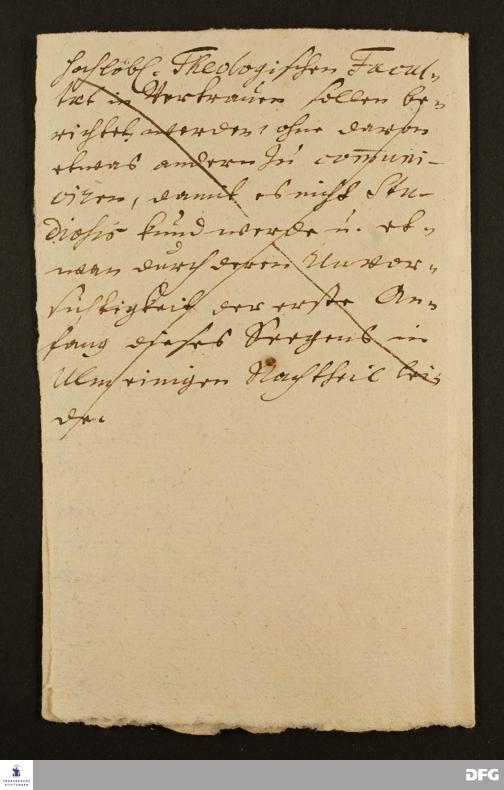 hochlöbl. Theologischen Facul-
tät in Vertrauen sollen be-
richtet werden, ohne davon
etwas andern zu com̄uni-
ciren, damit es nicht Stu-
diosis kund werde u. et-
wan durch deren Unvor-
sichtigkeit der erste An-
fang dieses Seegens in
Ulm einigen Nachtheil lei-
de.
FRANCKESCHE
STIFTUNGEN
DFG